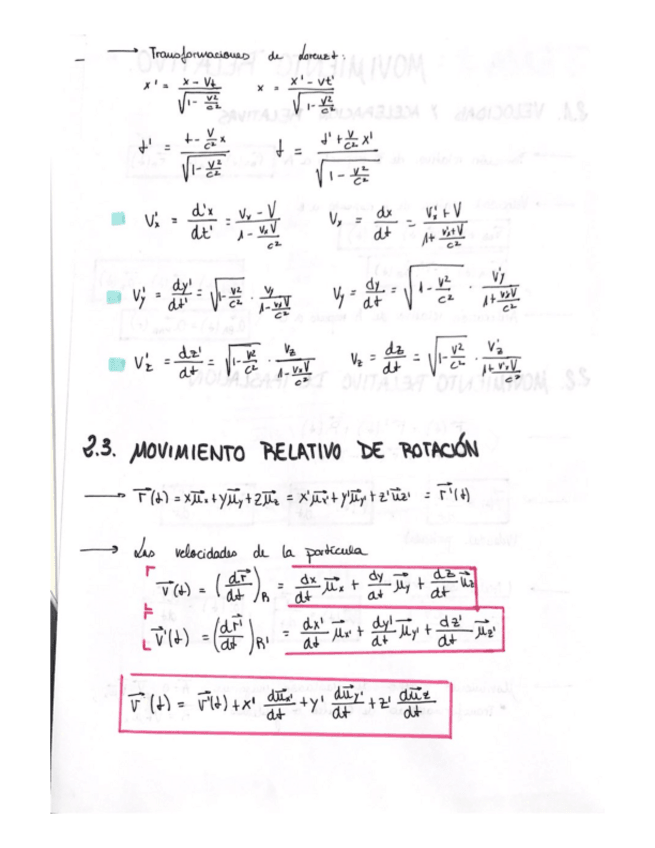 → Transformaciones de Lorenzt:
x' = (x - Vt)/√(1 - V²/c²)    x = (x' - Vt')/√(1 - V²/c²)
t' = (t - (V/c²)x)/√(1 - V²/c²)    t = (t' + (V/c²)x')/√(1 - V²/c²)
V'ₓ = d'x/dt' = (Vₓ - V)/(1 - VₓV/c²)    Vₓ = dx/dt = (V'ₓ + V)/(1 + V'ₓ+V/c²)
V'y = dy'/dt' = √(1 - V²/c²) · Vy/(1 - VₓV/c²)    Vy = dy/dt = √(1 - V²/c²) · V'y/(1 + V'ₓV/c²)
V'z = dz'/dt = √(1 - V²/c²) · Vz/(1 - VₓV/c²)    Vz = dz/dt = √(1 - V²/c²) · V'z/(1 + VₓV/c²)
2.3. MOVIMIENTO RELATIVO DE ROTACIÓN
→ r⃗(t) = xu⃗ₓ + yu⃗y + zu⃗z = x'u⃗x' + y'u⃗y' + z'u⃗z' = r⃗'(t)
→ Las velocidades de la partícula
v⃗(t) = (dr⃗/dt)R = dx/dt u⃗ₓ + dy/dt u⃗y + dz/dt u⃗z
v⃗'(t) = (dr⃗'/dt)R' = dx'/dt u⃗x' + dy'/dt u⃗y' + dz'/dt u⃗z'
v⃗(t) = v⃗'(t) + x' du⃗x'/dt + y' du⃗y'/dt + z' du⃗z/dt